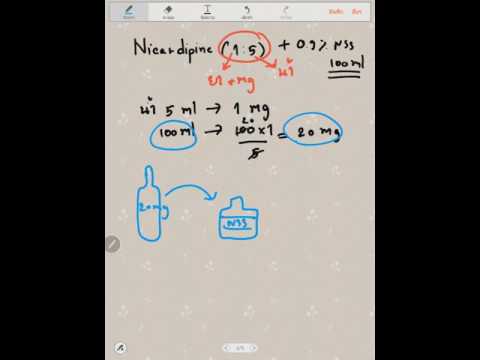 Nicardipine (1:5) + 0.9% NSS
100ml
ยา mg น้ำ
น้ำ 5 ml → 1 mg
100ml → 100x1 = 20 mg
20
5
20mg
NSS